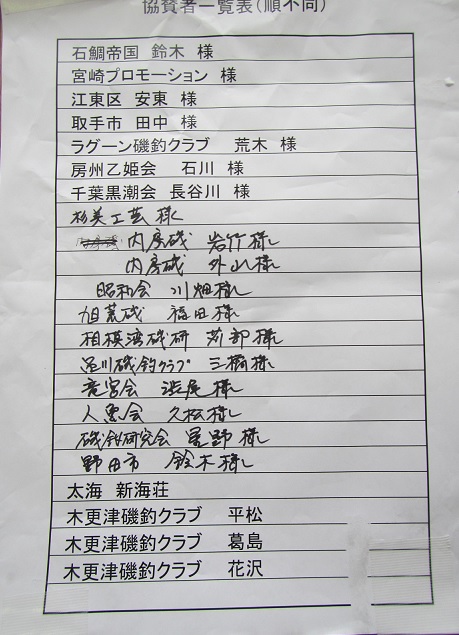 協賛者一覧表(順不同)
石鯛帝国 鈴木 様
宮崎プロモーション 様
江東区 安東 様
取手市 田中 様
ラグーン磯釣クラブ 荒木 様
房州乙姫会 石川 様
千葉黒潮会 長谷川 様
杉美工芸 様
内房磯 岩竹 様
内房磯 外山 様
昭和会 川畑 様
旭荒磯 福田 様
相模湾磯研 苅部 様
品川磯釣クラブ 三橋 様
竜宮会 渋尾 様
人魚会 久松 様
磯釣研究会 星野 様
野田市 鈴木 様
太海 新海荘
木更津磯釣クラブ 平松
木更津磯釣クラブ 葛島
木更津磯釣クラブ 花沢